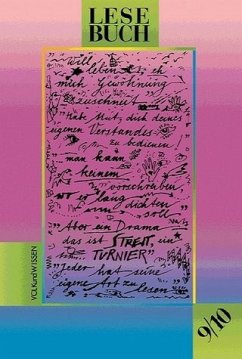 LESE
BUCH
will
leben ich
mich Gewöhnung
zuschneit
"Habe Mut, dich deines
eigenen Verstandes
zu bedienen!
man kann
keinem
vorschreiben,
dichten
soll
"Aber ein Drama
das ist STREIT, ein
TURNIER"
"Jeder hat seine
eigene Art zu lesen
VOLK und WISSEN
9/10